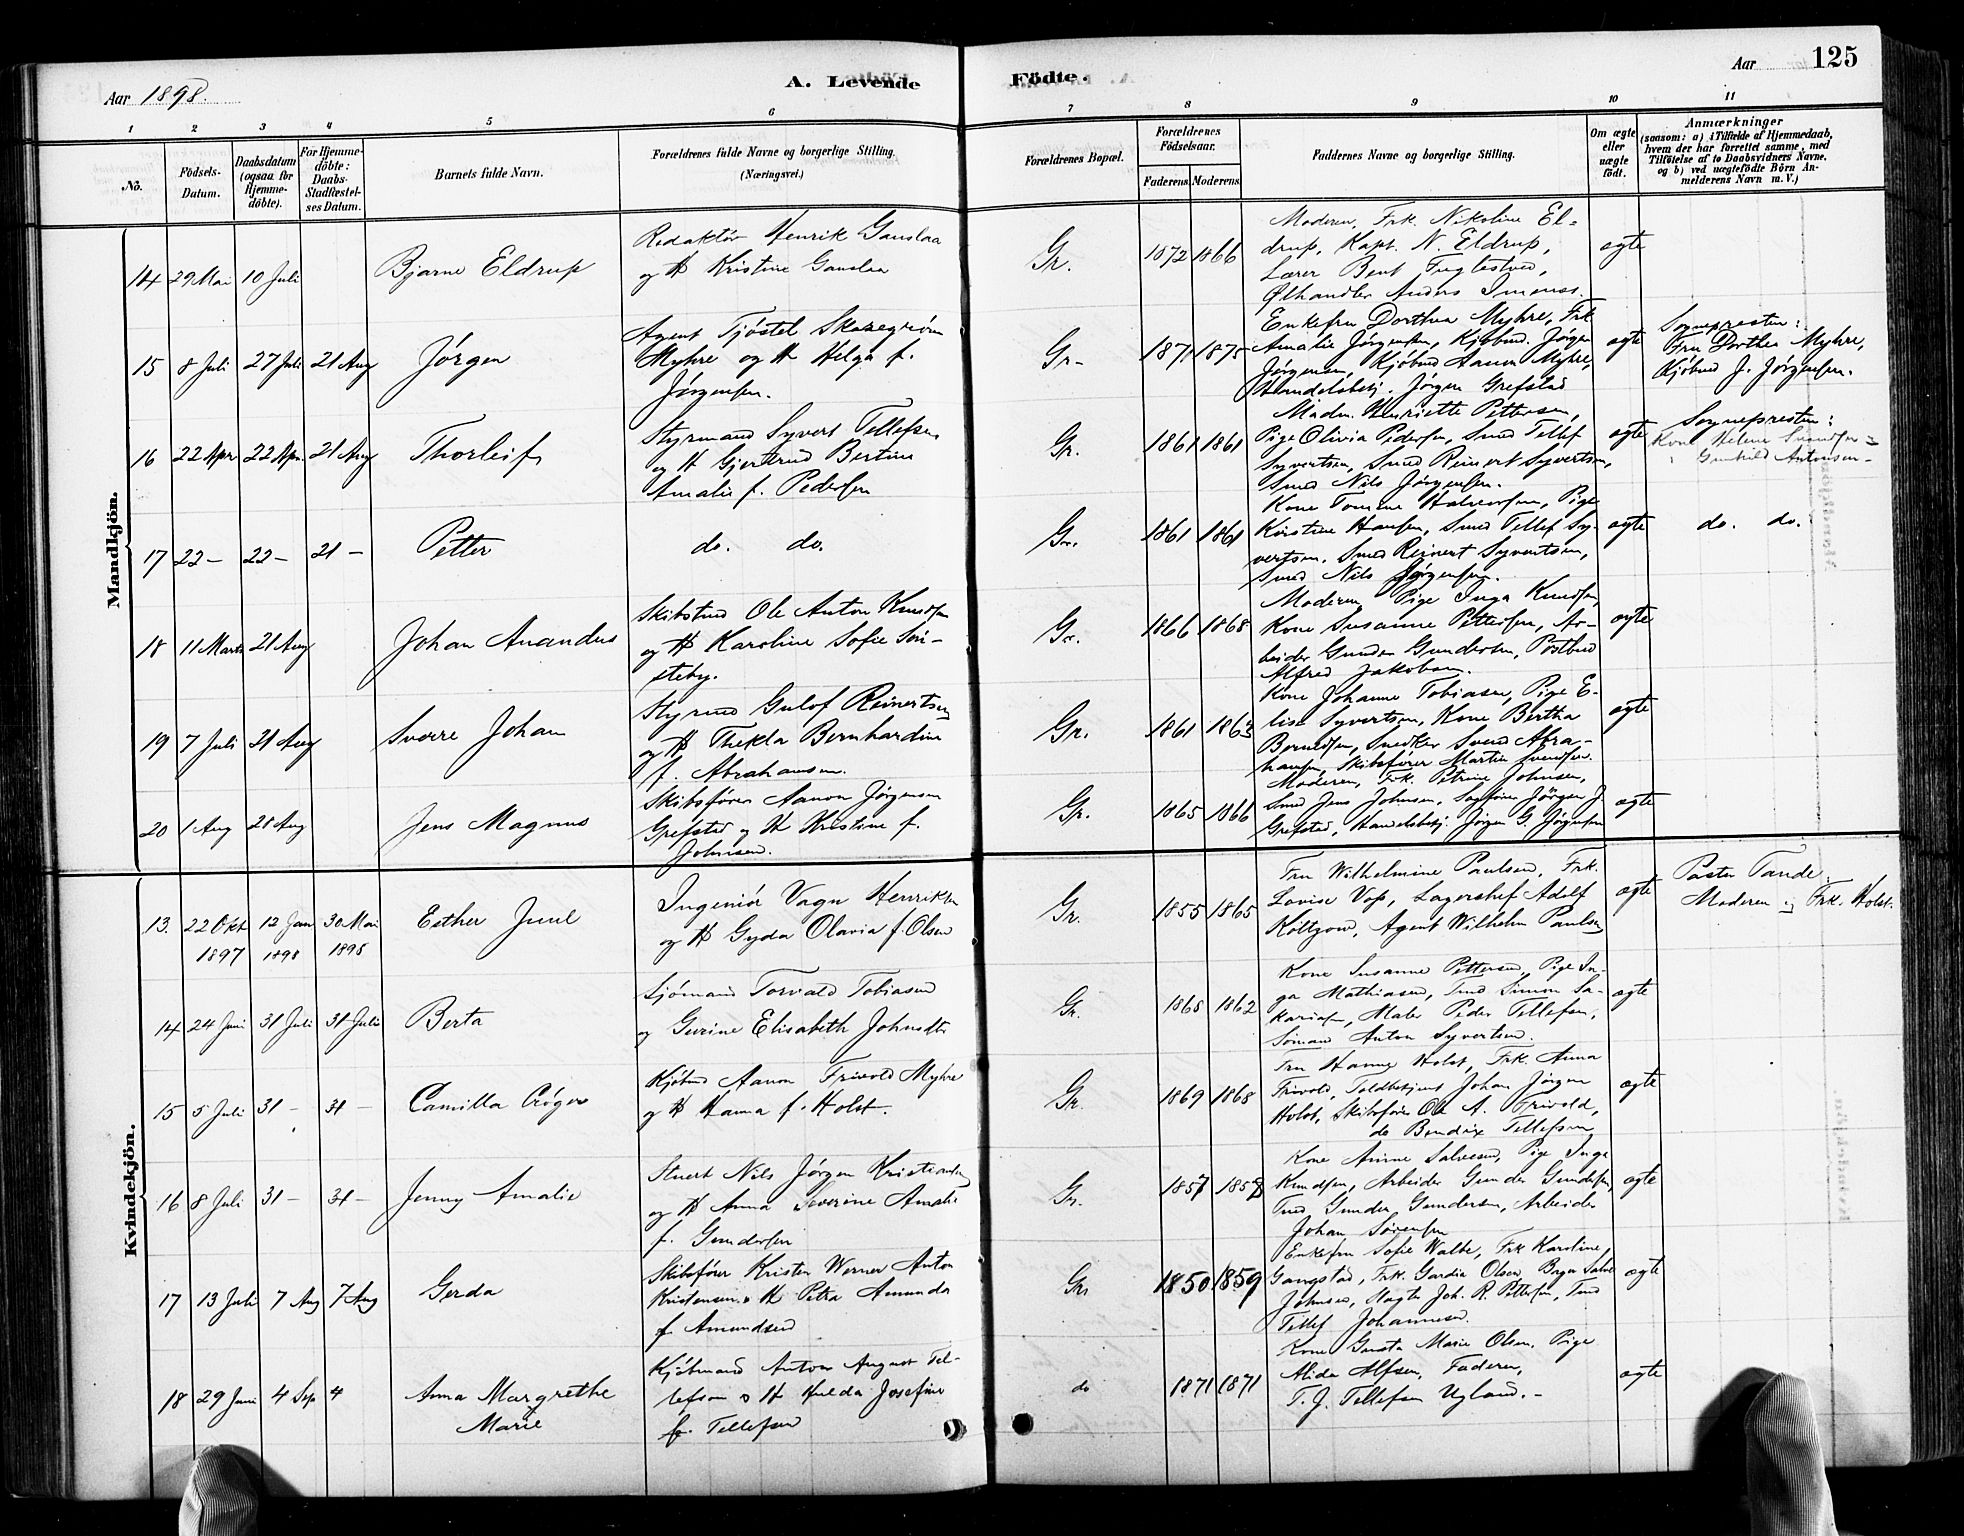 125
Aar 1898.
A. Levende
Födte.
Aar
1 2 3 4 5 6 7 8 9 10 11
No.
Födsels-
Datum.
Daabsdatum
(ogsaa for
Hjemme-
döbte).
For Hjemme-
döbte:
Daabs-
Stadfæstel-
ses Datum.
Barnets fulde Navn.
Forældrenes fulde Navne og borgerlige Stilling.
(Næringsvei.)
Forældrenes Bopæl.
Forældrenes
Födselsaar.
Faderens. Moderens.
Faddernes Navne og borgerlige Stilling.
Om ægte
eller
uægte
födt.
Anmærkninger
(saasom: a) i Tilfælde af Hjemmedaab,
hvem der har forrettet samme, med
Tilföielse af to Daabsvidners Navne,
og b) ved uægtefödte Börn An-
melderens Navn m. V.)
Mandkjön.
14 29 Mai 10 Juli
Bjarne Eldrup
Redaktör Henrik
og H Kristine
Gr.
1872 1866
Moderen, Frk. Nikoline El-
drup, Kapt. N. Eldrup,
Lærer Bent Fuglestved,
Ølhandler Anders
ægte
15 8 Juli 27 Juli 21 Aug
Jörgen
Agent Tjöstel
Myhre og H Helga f.
Jörgensen.
Gr.
1871 1875
Enkefru Dorthea Myhre, Frk
Amalie Jörgensen, Kjöbmd. Jörgen
Jörgensen, Kjöbmd Aanon Myhre,
Handelsbetj. Jörgen Grefstad
ægte
Sognepresten:
Fru Dorthea Myhre,
Kjöbmd J. Jörgensen.
16 22 Apr 22 Apr. 21 Aug
Thorleif
Styrmand Syvert Tellefsen
og H Gjertrud Bertine
Amalie f. Pedersen
Gr.
1861 1861
Madm. Henriette Pettersen,
Pige Olivia Pedersen, Smed Tellef
Syvertsen, Smed Reinert Syvertsen,
Smed Nils Jörgensen.
ægte
Sognepresten:
Kone Helene Svendsen
Gunhild Antonsen
17 22 — 22 — 21 —
Petter
do. do.
Gr.
1861 1861
Kone Tomine Halvorsen, Pige
Kirstine Hansen, Smed Tellef Sy-
vertsen, Smed Reinert Syvertsen,
Smed Nils Jörgensen.
ægte
do. do.
18 11 Marts 21 Aug
Johan Anandus
Skibstmd Ole Anton Knudsen
og H Karoline Sofie Sön-
steby.
Gr.
1866 1868
Moderen, Pige Inga Knudsen,
Kone Susanne Pettersen, Ar-
beider Gunder Gundersen, Postbud
Alfred Jakobsen.
ægte
19 7 Juli 21 Aug
Sverre Johan
Styrmd Gulof Reinertsen
og H Thekla Bernhardine
f. Abrahamsen.
Gr.
1861 1863
Kone Johanne Tobiasen, Pige E-
lise Syvertsen, Kone Bertha
Berntsen, Snedker Svend Abra-
hamsen, Skibsförer Martin Svendsen.
ægte
20 1 Aug 21 Aug
Jens Magnus
Skibsförer Aanon Jörgensen
Grefstad og H Kristine f.
Johnsen.
Gr.
1865 1866
Moderen, Frk. Petrine Johnsen,
Smed Jens Johnsen, Jörgen J.
Grefstad, Handelsbetj. Jörgen G. Jörgensen
ægte
Kvindekjön.
13. 22 Okt 12 Jan 30 Mai
1897 1898 1898
Esther Juul
Ingeniör Vagn Henriksen
og H Gyda Olavia f. Olsen
Gr.
1855 1865
Fru Wilhelmine Paulsen, Frk.
Lovise Voss, Lagershef Adolf
Költzow, Agent Wilhelm Paulsen
ægte
Pastor Tande.
Moderen og Frk. Holst.
14 24 Juni 31 Juli 31 Juli
Berta
Sjömand Torvald Tobiasen
og Gurine Elisabeth Johnsdtr
Gr.
1868 1862
Kone Susanne Pettersen, Pige In-
ga Mathiasen, Tmd Simon Sa-
kariasen, Maler Peder Tellefsen,
Sömand Anton Syvertsen.
ægte
15 5 Juli 31 — 31 —
Camilla Cröger
Kjöbmd Aanon Frivold Myhre
og H Hanna f. Holst.
Gr.
1869 1868
Fru Hanne Holst, Frk. Anna
Frivold, Toldbetjent Johan Jörgen
Holst, Skibsförer Ole A. Frivold,
do Bendix Tellefsen
ægte
16 8 Juli 31 — 31 —
Jenny Amalie
Stuert Nils Jörgen Kristiansen
og H Anna Severine Amalie
f. Gundersen
Gr.
1857 1858
Kone Anne Salvesen, Pige Inga
Knudsen, Arbeider Gunder Gundersen,
Tmd Gunder Gundersen, Arbeider
Johan Sörensen
ægte
17 13 Juli 7 Aug 7 Aug
Gerda
Skibsförer Kristen Werner Anton
Kristensen & H Petra Amanda
f. Amundsen
Gr.
1850 1859
Enkefru Sofie Walbe, Frk Karoline
Gangstad, Frk. Gardia Olsen, Bager Salve
Johnsen, Joh. R. Pettersen, Tmd
Tellef Johannesen.
ægte
18 29 Juni 4 Sep 4
Anna Margrethe
Marie
Kjöbmand Anton August Tel-
lefsen & H Hulda Josefine
f. Tellefsen
do
1871 1871
Kone Gusta Marie Olsen, Pige
Alida Alfsen, Faderen,
T. J. Tellefsen Ugland. —
ægte